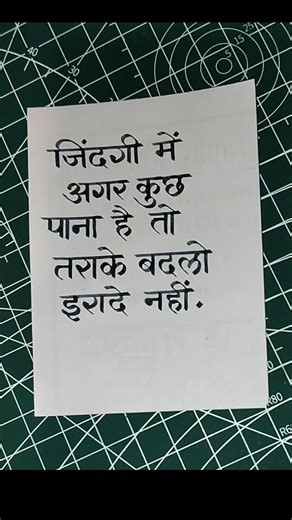 जिंदगी में
अगर कुछ
पाना है तो
तराके बदलो
इरादे नहीं.
40
30
5
15
25
R80